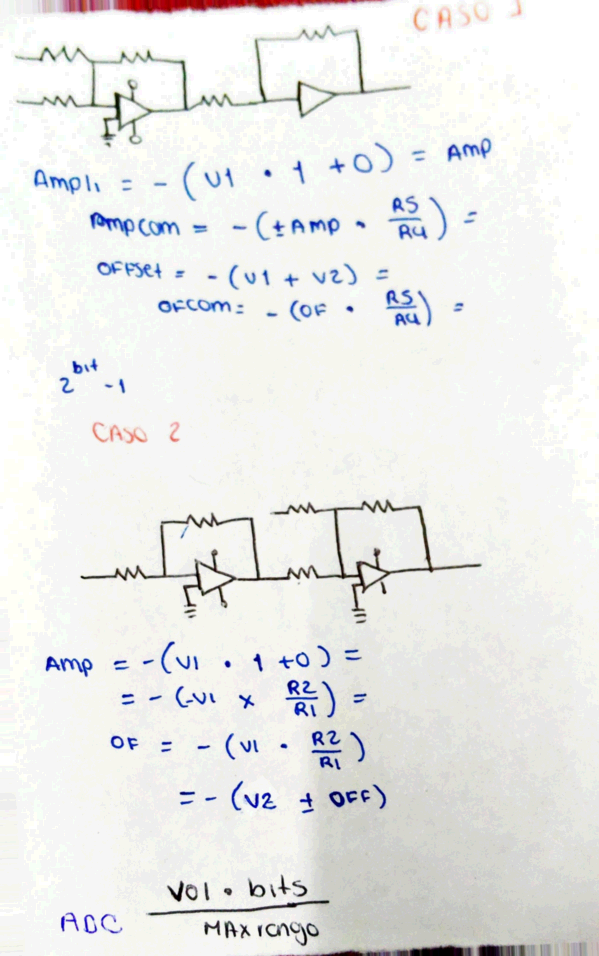 CASO 1
Ampli = - (V1 • 1 + 0) = AMP
Ampcom = - (± AMP • R5/R4) =
OFFset = - (V1 + V2) =
OFCOM = - (OF • R5/R4) =
2^bit - 1
CASO 2
Amp = - (V1 • 1 + 0) =
= - (-V1 x R2/R1) =
OF = - (V1 • R2/R1)
= - (V2 ± OFF)
ADC Vol • bits / MAX rango